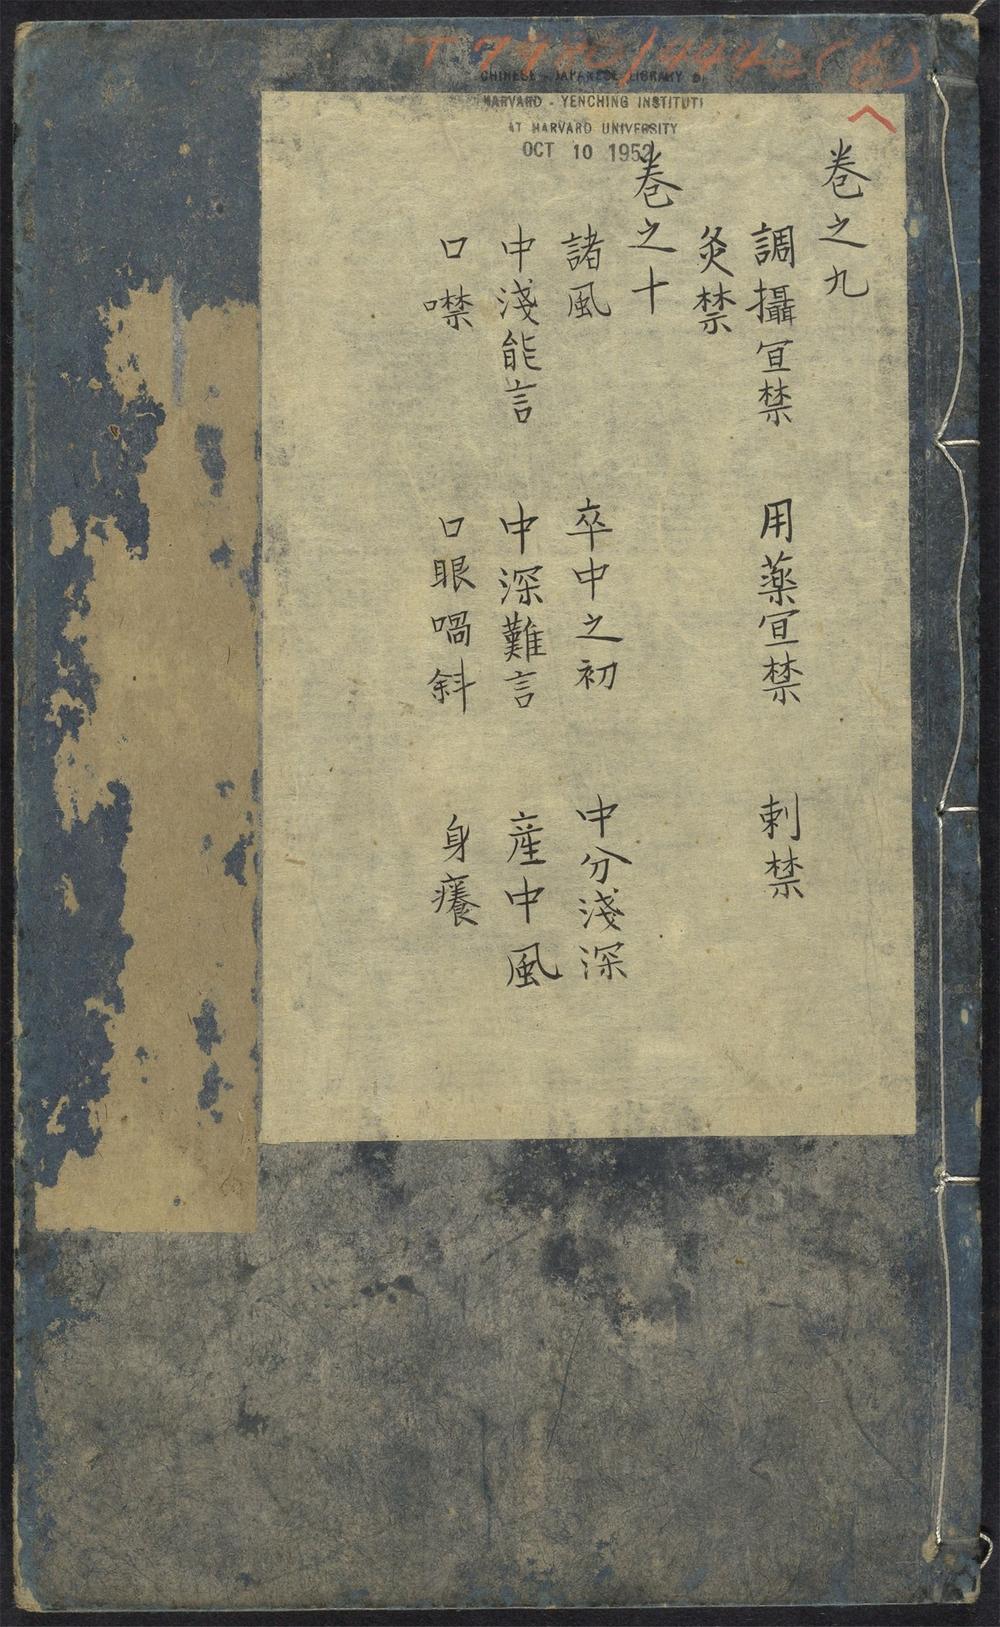 CHINESE - JAPANESE LIBRARY OF
HARVARD - YENCHING INSTITUTE
AT HARVARD UNIVERSITY
OCT 10 1952
卷之九
調攝宜禁 用薬宜禁 刺禁
灸禁
卷之十
諸風 卒中之初 中分淺深
中淺能言 中深難言 産中風
口噤 口眼喎斜 身癢